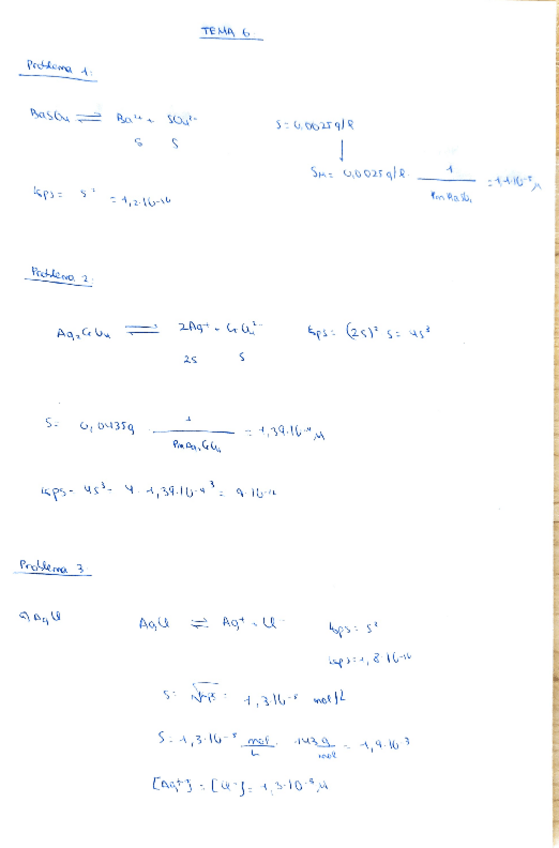 TEMA 6
Problema 1:
BaSO₄ ⇌ Ba²⁺ + SO₄²⁻
S S
S = 0,0025 g/l
S_M = 0,0025 g/l · 1 / Pm BaSO₄ = 1,1·10⁻⁵ M
Kps = S² = 1,2·10⁻¹⁰
Problema 2:
Ag₂CrO₄ ⇌ 2Ag⁺ + CrO₄²⁻ Kps = (2S)² S = 4S³
2S S
S = 0,0435g 1 / Pm Ag₂CrO₄ = 1,39·10⁻⁴ M
Kps = 4S³ = 4 · 1,39·10⁻⁴ ³ = 9·10⁻¹²
Problema 3
a) AgCl
AgCl ⇌ Ag⁺ + Cl⁻ Kps = S²
Kps = 1,8·10⁻¹⁰
S = √Kps = 1,3·10⁻⁵ mol/L
S = 1,3·10⁻⁵ mol/L · 143g/mol = 1,9·10⁻³
[Ag⁺] = [Cl⁻] = 1,3·10⁻⁵ M